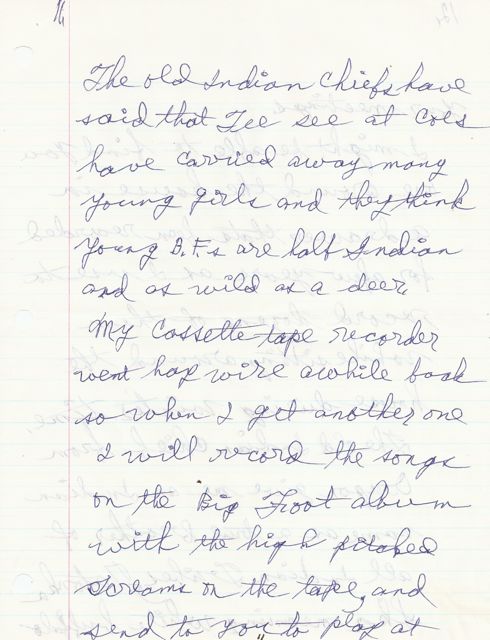 16
The old Indian Chiefs have
said that Tee see at Coes
have carried away many
young girls and they think
young B.F.s are half Indian
and as wild as a deer.
My Cassette tape recorder
went hap wire awhile back
so when I get another one
I will record the songs
on the Big Foot album
with the high pitched
screams on the tape, and
send to you to play at